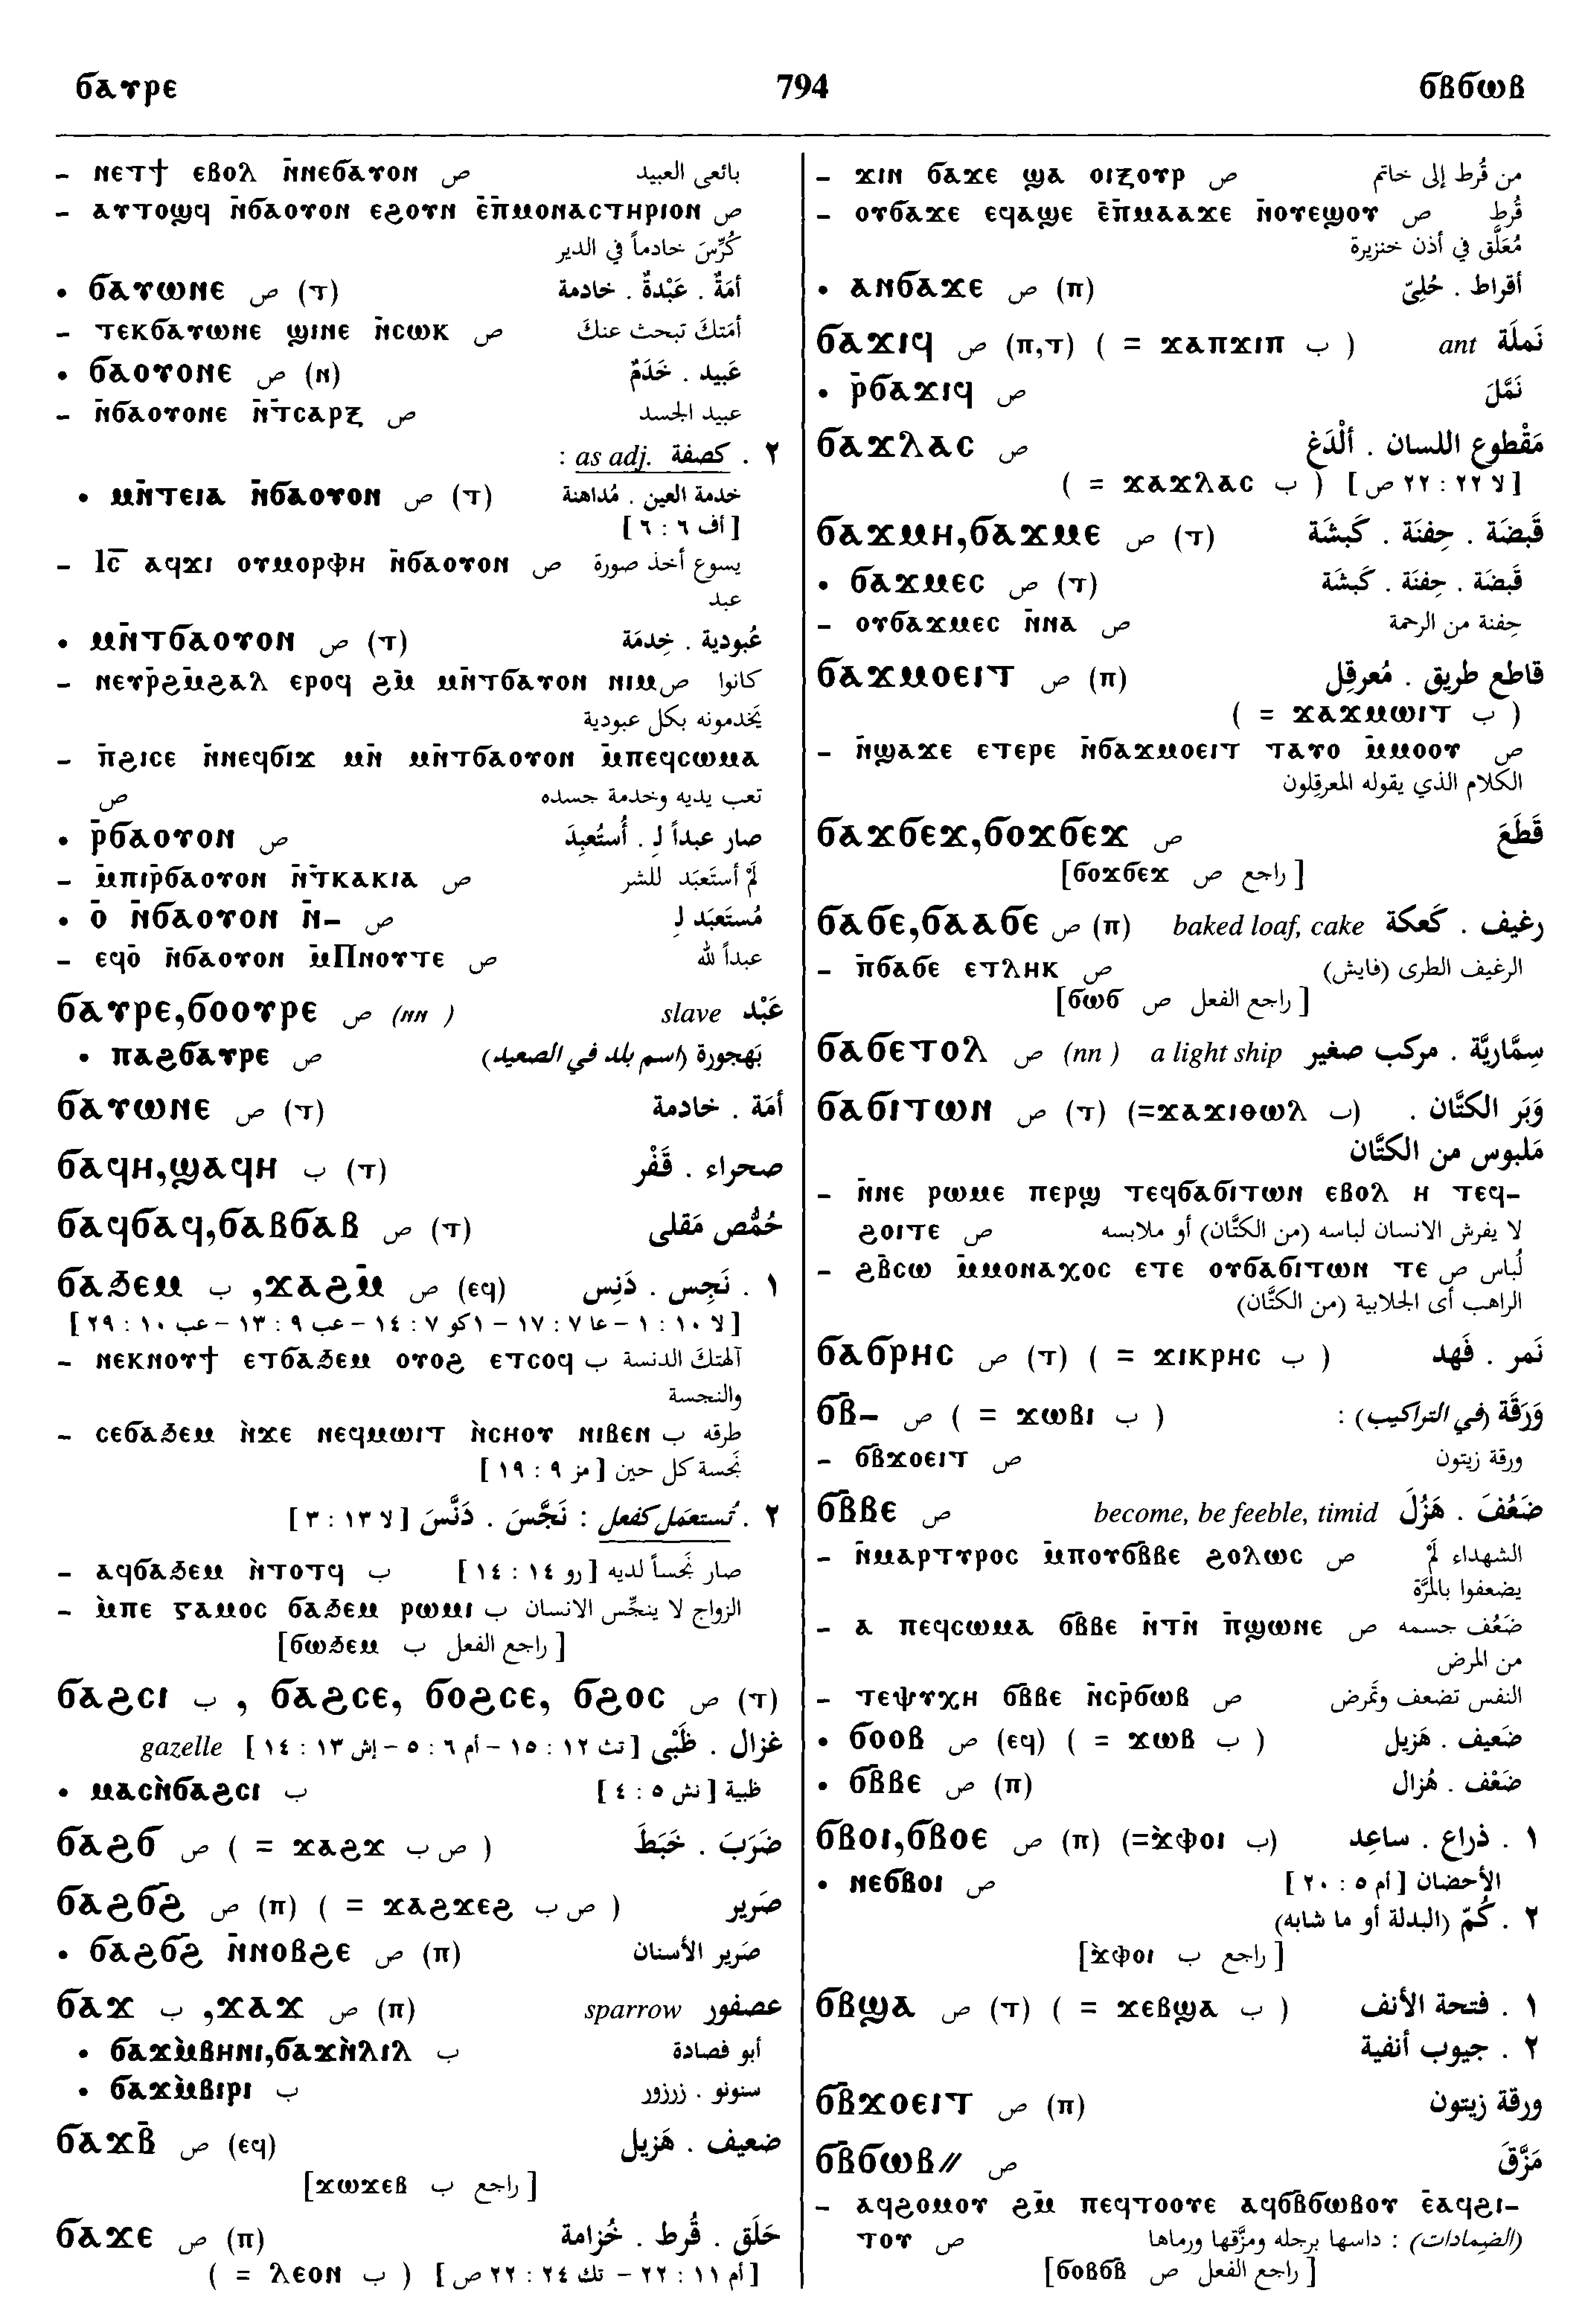 ϭⲁⲩⲣⲉ 794 ϭⲃϭⲱⲃ
– ⲛⲉⲧϯ ⲉⲃⲟⲗ ⲛ̄ⲛⲉϭⲁⲩⲟⲛ ص بائعى العبيد
– ⲁⲩⲧⲟϣϥ ⲛ̄ϭⲁⲟⲩⲟⲛ ⲉϩⲟⲩⲛ ⲉ̄ⲡⲙⲟⲛⲁⲥⲧⲏⲣⲓⲟⲛ ص
كُرِّسَ خادماً في الدير
• ϭⲁⲩⲱⲛⲉ ص (ⲧ) أمَةٌ . عَبْدةٌ . خادمة
– ⲧⲉⲕϭⲁⲩⲱⲛⲉ ϣⲓⲛⲉ ⲛ̄ⲥⲱⲕ ص أمَتكَ تبحث عنكَ
• ϭⲁⲟⲩⲟⲛⲉ ص (ⲛ) عَبيد . خَدَمٌ
– ⲛ̄ϭⲁⲟⲩⲟⲛⲉ ⲛ̄ⲧⲥⲁⲣⲝ ص عبيد الجسد
٢ . كصفة as adj. :
• ⲙⲛ̄ⲧⲉⲓⲁ ⲛ̄ϭⲁⲟⲩⲟⲛ ص (ⲧ) خدمة العين . مُداهنة
[أف ٦ : ٦]
– ⲓⲥ̄ ⲁϥϫⲓ ⲟⲩⲙⲟⲣⲫⲏ ⲛ̄ϭⲁⲟⲩⲟⲛ ص يسوع أخذ صورة
عبد
• ⲙⲛ̄ⲧϭⲁⲟⲩⲟⲛ ص (ⲧ) عُبودية . خِدمَة
– ⲛⲉⲩⲣ̄ϩⲙ̄ϩⲁⲗ ⲉⲣⲟϥ ϩⲙ̄ ⲙⲛ̄ⲧϭⲁⲩⲟⲛ ⲛⲓⲙ ص كانوا
يَخدمونه بكل عبودية
– ⲡ̄ϩⲓⲥⲉ ⲛ̄ⲛⲉϥϭⲓϫ ⲙⲛ̄ ⲙⲛ̄ⲧϭⲁⲟⲩⲟⲛ ⲙ̄ⲡⲉϥⲥⲱⲙⲁ
ص تعب يديه وخدمة جسده
• ⲣ̄ϭⲁⲟⲩⲟⲛ ص صار عبداً لِـ . أُستُعبِدَ
– ⲙ̄ⲡⲓⲣ̄ϭⲁⲟⲩⲟⲛ ⲛ̄ⲧⲕⲁⲕⲓⲁ ص لَمْ أستَعبَد للشر
• ⲟ̄ ⲛ̄ϭⲁⲟⲩⲟⲛ ⲛ̄– ص مُستَعبَد لِـ
– ⲉϥⲟ̄ ⲛ̄ϭⲁⲟⲩⲟⲛ ⲙ̄Ⲡⲛⲟⲩⲧⲉ ص عبداً لله
ϭⲁⲩⲣⲉ,ϭⲟⲟⲩⲣⲉ ص (nn ) slave عَبْد
• ⲡⲁϩϭⲁⲩⲣⲉ ص بَهجورة (اسم بلد في الصعيد)
ϭⲁⲩⲱⲛⲉ ص (ⲧ) أمَة . خادمة
ϭⲁϥⲏ,ϣⲁϥⲏ ب (ⲧ) صحراء . قَفْر
ϭⲁϥϭⲁϥ,ϭⲁⲃϭⲁⲃ ص (ⲧ) حُمُّص مَقلى
ϭⲁϧⲉⲙ ب ,ϫⲁϩⲙ̄ ص (ⲉϥ) ١ . نَجِس . دَنِس
[لا ١٠ : ١ – عا ٧ : ١٧ – ١كو ٧ : ١٤ – عب ٩ : ١٣ – عب ١٠ : ٢٩]
– ⲛⲉⲕⲛⲟⲩϯ ⲉⲧϭⲁϧⲉⲙ ⲟⲩⲟϩ ⲉⲧⲥⲟϥ ب آلهتكَ الدنسة
والنجسة
– ⲥⲉϭⲁϧⲉⲙ ⲛ̀ϫⲉ ⲛⲉϥⲙⲱⲓⲧ ⲛ̀ⲥⲏⲟⲩ ⲛⲓⲃⲉⲛ ب طرقه
نَجسة كل حين [مز ٩ : ١٩]
٢ . تُستعمَل كفعل : نَجَّسَ . دَنَّسَ [لا ١٣ : ٣]
– ⲁϥϭⲁϧⲉⲙ ⲛ̀ⲧⲟⲧϥ ب صار نَجساً لديه [رو ١٤ : ١٤]
– ⲙ̀ⲡⲉ ⲅⲁⲙⲟⲥ ϭⲁϧⲉⲙ ⲣⲱⲙⲓ ب الزواج لا ينجِّس الانسان
[راجع الفعل ب ϭⲱϧⲉⲙ]
ϭⲁϩⲥⲓ ب , ϭⲁϩⲥⲉ, ϭⲟϩⲥⲉ, ϭϩⲟⲥ ص (ⲧ)
غزال . ظَبْى [تث ١٢ : ١٥ – أم ٦ : ٥ – إش ١٣ : ١٤] gazelle
• ⲙⲁⲥⲛ̀ϭⲁϩⲥⲓ ب ظبية [نش ٥ : ٤]
ϭⲁϩϭ ص ( = ϫⲁϩϫ ص ب ) ضَرَبَ . خَبَطَ
ϭⲁϩϭϩ̄ ص (ⲡ) ( = ϫⲁϩϫⲉϩ ص ب ) صَرير
• ϭⲁϩϭϩ̄ ⲛ̄ⲛⲟⲃϩⲉ ص (ⲡ) صَرير الأسنان
ϭⲁϫ ب ,ϫⲁϫ ص (ⲡ) sparrow عصفور
• ϭⲁϫⲙ̀ⲃⲏⲛⲓ,ϭⲁϫⲛ̀ⲗⲓⲗ ب أبو فصادة
• ϭⲁϫⲙ̀ⲃⲓⲣⲓ ب سنونو . زرزور
ϭⲁϫⲃ̄ ص (ⲉϥ) ضعيف . هَزيل
[راجع ب ϫⲱϫⲉⲃ]
ϭⲁϫⲉ ص (ⲡ) حَلَق . قُرط . خُزامة
[أم ١١ : ٢٢ – تك ٢٤ : ٢٢ ص] ( = ⲗⲉⲟⲛ ب )
– ϫⲓⲛ ϭⲁϫⲉ ϣⲁ ⲟⲓⲝⲟⲩⲣ ص من قُرط إلى خاتم
– ⲟⲩϭⲁϫⲉ ⲉϥⲁϣⲉ ⲉ̄ⲡⲙⲁⲁϫⲉ ⲛ̄ⲟⲩⲉϣⲟⲩ ص قُرط
مُعَلَّق في أذن خنزيرة
• ⲁⲛϭⲁϫⲉ ص (ⲡ) أقراط . حُلِيّ
ϭⲁϫⲓϥ ص (ⲡ,ⲧ) ( = ϫⲁⲡϫⲓⲡ ب ) ant نَملَة
• ⲣ̄ϭⲁϫⲓϥ ص نَمَّلَ
ϭⲁϫⲗⲁⲥ ص مَقْطوع اللسان . ألْدَغ
[لا ٢٢ : ٢٢ ص] ( = ϫⲁϫⲗⲁⲥ ب )
ϭⲁϫⲙⲏ,ϭⲁϫⲙⲉ ص (ⲧ) قَبضَة . حِفنَة . كَبشَة
• ϭⲁϫⲙⲉⲥ ص (ⲧ) قَبضَة . حِفنَة . كَبشَة
– ⲟⲩϭⲁϫⲙⲉⲥ ⲛ̄ⲛⲁ ص حِفنة من الرحمة
ϭⲁϫⲙⲟⲉⲓⲧ ص (ⲡ) قاطع طريق . مُعرقِل
( = ϫⲁϫⲙⲱⲓⲧ ب )
– ⲛ̄ϣⲁϫⲉ ⲉⲧⲉⲣⲉ ⲛ̄ϭⲁϫⲙⲟⲉⲓⲧ ⲧⲁⲩⲟ ⲙ̄ⲙⲟⲟⲩ ص
الكلام الذي يقوله المعرقِلون
ϭⲁϫϭⲉϫ,ϭⲟϫϭⲉϫ ص قَطَعَ
[راجع ص ϭⲟϫϭⲉϫ]
ϭⲁϭⲉ,ϭⲁⲁϭⲉ ص (ⲡ) baked loaf, cake رغيف . كَعكة
– ⲡ̄ϭⲁϭⲉ ⲉⲧⲗⲏⲕ ص الرغيف الطرى (فايش)
[راجع الفعل ص ϭⲱϭ]
ϭⲁϭⲉⲧⲟⲗ ص (nn ) a light ship سِمَّاريَّة . مركب صغير
ϭⲁϭⲓⲧⲱⲛ ص (ⲧ) (=ϫⲁϫⲓⲑⲱⲗ ب) وَبَر الكتَّان .
مَلبوس من الكتَّان
– ⲛ̄ⲛⲉ ⲣⲱⲙⲉ ⲡⲉⲣϣ ⲧⲉϥϭⲁϭⲓⲧⲱⲛ ⲉⲃⲟⲗ ⲏ ⲧⲉϥ–
ϩⲟⲓⲧⲉ ص لا يفرش الانسان لباسه (من الكتَّان) أو ملابسه
– ϩⲃ̄ⲥⲱ ⲙ̄ⲙⲟⲛⲁⲭⲟⲥ ⲉⲧⲉ ⲟⲩϭⲁϭⲓⲧⲱⲛ ⲧⲉ ص لُباس
الراهب أى الجلابية (من الكتَّان)
ϭⲁϭⲣⲏⲥ ص (ⲧ) ( = ϫⲓⲕⲣⲏⲥ ب ) نَمر . فَهد
ϭⲃ̄– ص ( = ϫⲱⲃⲓ ب ) وَرَقَة (في التراكيب) :
– ϭⲃ̄ϫⲟⲉⲓⲧ ص ورقة زيتون
ϭⲃ̄ⲃⲉ ص become, be feeble, timid ضَعُفَ . هَزُلَ
– ⲛ̄ⲙⲁⲣⲧⲩⲣⲟⲥ ⲙ̄ⲡⲟⲩϭⲃ̄ⲃⲉ ϩⲟⲗⲱⲥ ص الشهداء لَمْ
يضعفوا بالمَرَّة
– ⲁ ⲡⲉϥⲥⲱⲙⲁ ϭⲃ̄ⲃⲉ ⲛ̄ⲧⲛ̄ ⲡ̄ϣⲱⲛⲉ ص ضَعُف جسمه
من المرض
– ⲧⲉⲯⲩⲭⲏ ϭⲃ̄ⲃⲉ ⲛ̄ⲥⲣ̄ϭⲱⲃ ص النفس تضعف وتَمرض
• ϭⲟⲟⲃ ص (ⲉϥ) ( = ϫⲱⲃ ب ) ضَعيف . هَزيل
• ϭⲃ̄ⲃⲉ ص (ⲡ) ضَعْف . هُزال
ϭⲃⲟⲓ,ϭⲃⲟⲉ ص (ⲡ) (=ϫ̀ⲫⲟⲓ ب) ١ . ذراع . ساعِد
• ⲛⲉϭⲃⲟⲓ ص الأحضان [أم ٥ : ٢٠]
٢ . كُمّ (البدلة أو ما شابه)
[راجع ب ϫ̀ⲫⲟⲓ]
ϭⲃϣⲁ ص (ⲧ) ( = ϫⲉⲃϣⲁ ب ) ١ . فتحة الأنف
٢ . جيوب أنفية
ϭⲃ̄ϫⲟⲉⲓⲧ ص (ⲡ) ورقة زيتون
ϭⲃ̄ϭⲱⲃ// ص مَزَّقَ
– ⲁϥϩⲟⲙⲟⲩ ϩⲙ̄ ⲡⲉϥⲧⲟⲟⲩⲉ ⲁϥϭⲃ̄ϭⲱⲃⲟⲩ ⲉ̄ⲁϥϩⲓ–
ⲧⲟⲩ ص (الضِمادات) : داسها برجله ومزَّقها ورماها
[راجع الفعل ص ϭⲟⲃϭⲃ̄]